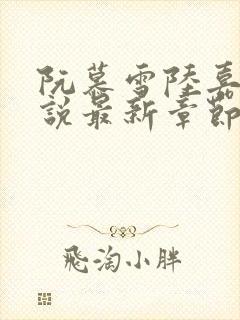 阮慕雪陸嘉
說最新章節
飛淘小胖